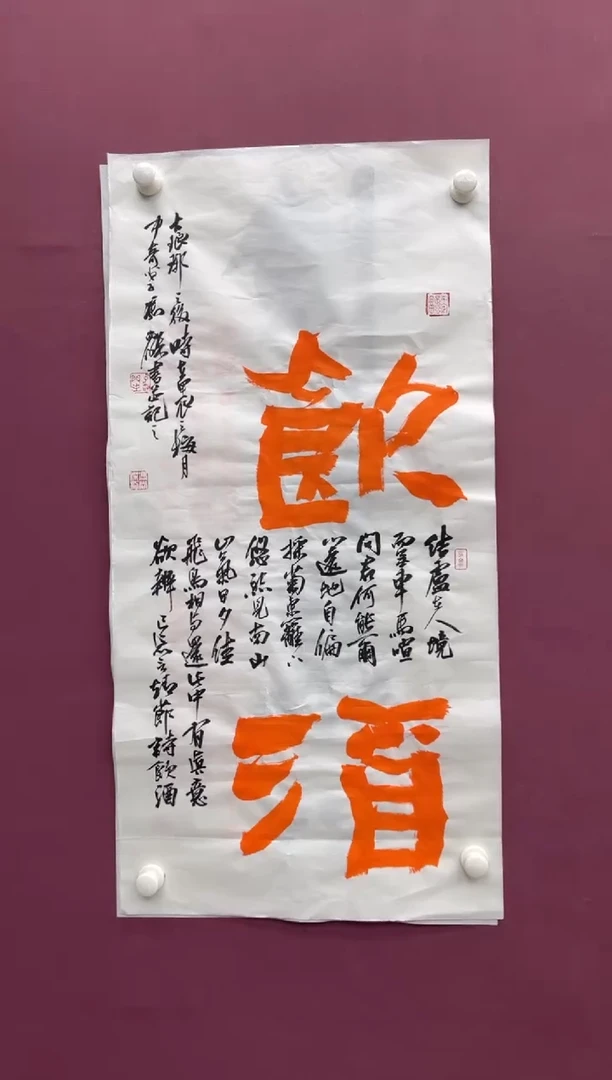 飲
酒
結盧在人境
而無車馬喧
問君何能爾
心遠地自偏
採菊東籬下
悠然見南山
山氣日夕佳
飛鳥相與還此中有真意
欲辨已忘言靖節詩飲酒
書並記之